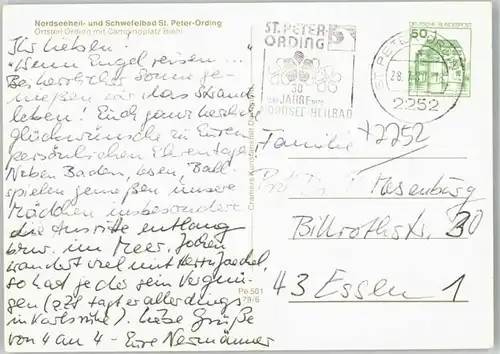 Nordseeheil- und Schwefelbad St. Peter-Ording
Ortsteil Ording mit Campingplatz Biehl
Ihr Lieben.
"Wenn Engel reisen..."
Bei herrlicher Sonne ge-
nießen wir das Strand-
leben. Euch ganz herzliche
Glückwünsche zu Euren
persönlichen Ehrentagen.
Neben Baden, Lesen, Ball-
spielen genießen unsere
Mädchen insbesondere
die Ausritte entlang
bzw. im Meer. Jochen
wandert viel mit Herrn Jaeckel,
so hat jeder sein Vergnü-
gen (z.Zt. tagt er allerdings
in Karlsruhe). Liebe Grüße
von 4 an 4 - Eure
Pe 501
79/6
ST. PETER-
ORDING
30
JAHRE
NORDSEE-HEILBAD
ST. PETER-
28.
2252
DEUTSCHE BUNDESPOST
50
Familie
+2252
Mesenburg
Billrothstr. 30
43 Essen 1